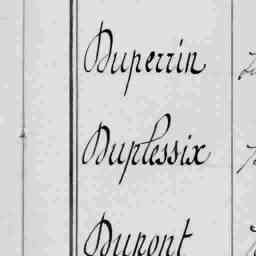 Duperrin
Duplessix
Dupont